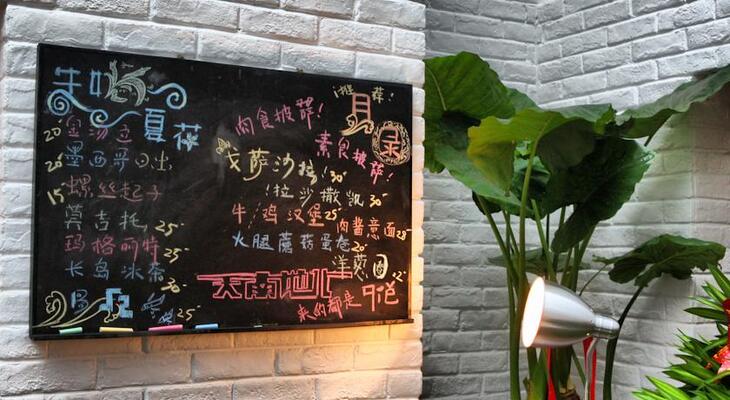 推荐:
目录
夏花
20 金汤力
28 墨西哥日出
15 螺丝起子
莫吉托 25
玛格丽特 25
长岛冰茶 30
25
肉食披萨!
素食披萨!
萨沙拉 30
拉沙撒凯 30
牛/鸡汉堡 25
肉酱意面 28
火腿蘑菇蛋卷 20
洋葱圈
天南地北
来的都是